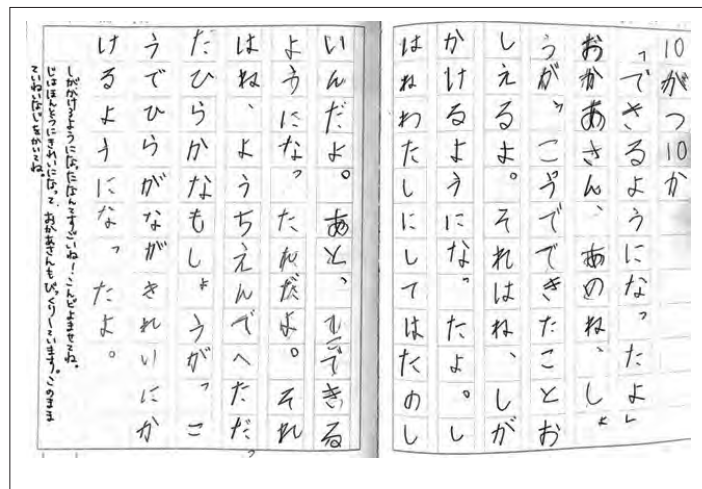 10がつ10か
「できるようになったよ」
おかあさん、あのね、しょ
うがっこうでできたことお
しえるよ。それはね、しが
かけるようになったよ。し
はねわたしにしてはたのし
いんだよ。あと、もできる
ようになったんだよ。それ
はね、ようちえんでへただっ
たひらがなもしょうがっこ
うでひらがながきれいにか
けるようになったよ。
しがかけるようになったなんてすごいね！こんどよませてね。
じはほんとうにきれいになって、おかあさんもびっくりしています。このまま
ていねいなじをかいてね。